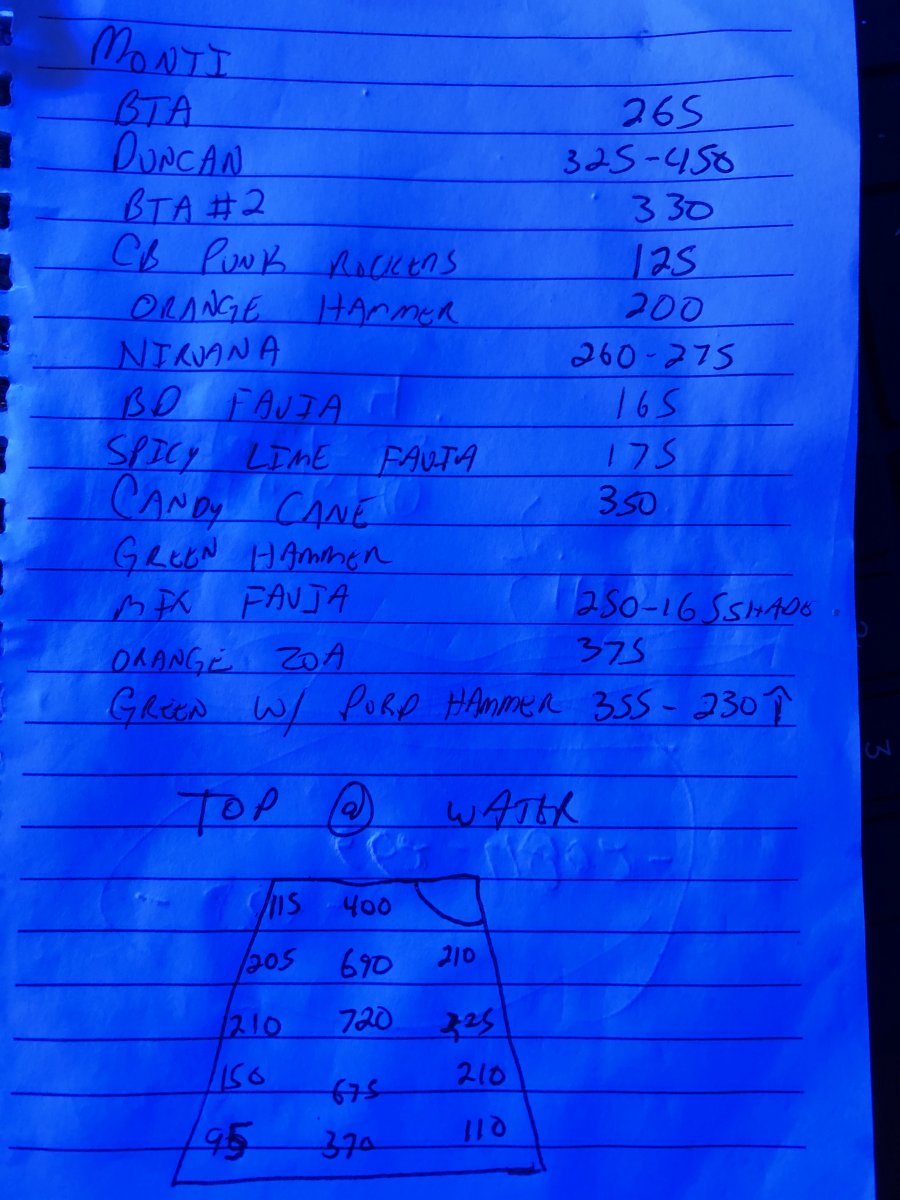 MONTI
BTA 265
DUNCAN 325-450
BTA #2 330
CB PUNK ROCKERS 125
ORANGE HAMMER 200
NIRVANA 260-275
BD FAVIA 165
SPICY LIME FAVIA 175
CANDY CANE 350
GREEN HAMMER
FAVIA 250-165 SHADE
ORANGE ZOA 375
GREEN W/ PURP HAMMER 355-230↑
TOP @ WATER
115 400
205 690 210
210 720 225
150 675 210
95 370 110